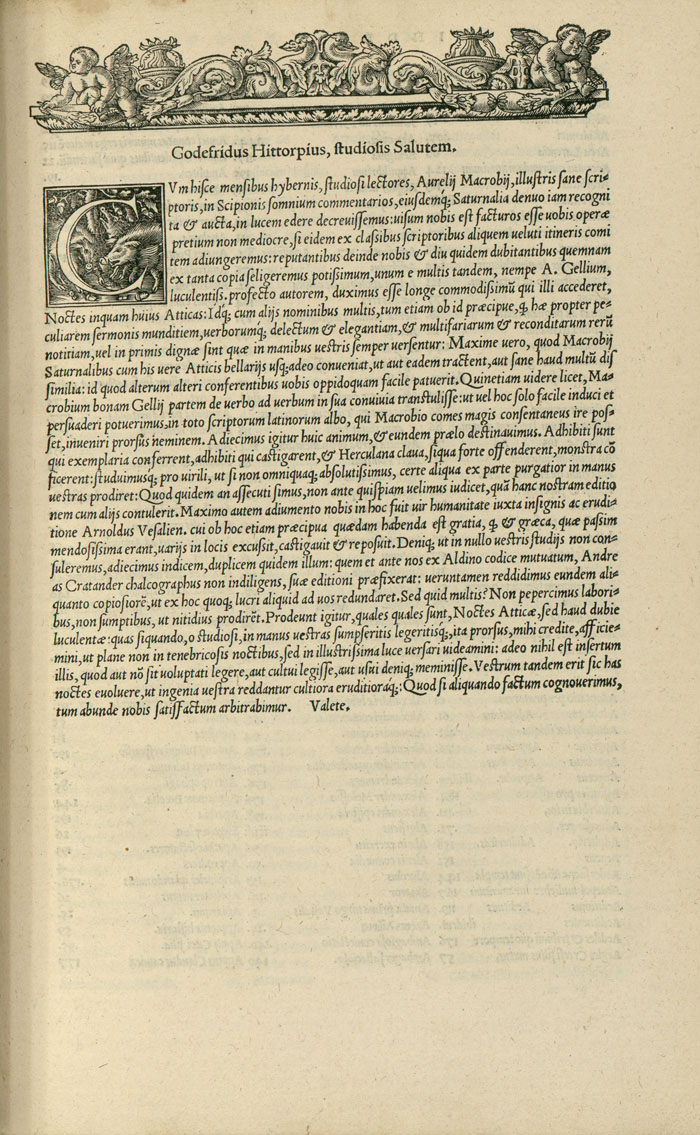 Godefridus Hittorpius, studiosis Salutem.
CVm hisce mensibus hybernis, studiosi lectores, Aurelij Macrobij, illustris sane scri-
ptoris, in Scipionis somnium commentarios, eiusdemq́; Saturnalia denuo iam recogni
ta & aucta, in lucem edere decreuissemus: uisum nobis est facturos esse uobis operæ
pretium non mediocre, si eidem ex classibus scriptoribus aliquem ueluti itineris comi
tem adiungeremus: reputantibus deinde nobis & diu quidem dubitantibus quemnam
ex tanta copia seligeremus potissimum, unum e multis tandem, nempe A. Gellium,
luculentiss. profecto autorem, duximus esse longe commodissimū qui illi accederet,
Noctes inquam huius Atticas: Idq́; cum alijs nominibus multis, tum etiam ob id præcipue, ꝙ hæ propter pe-
culiarem sermonis munditiem, uerborumq́; delectum & elegantiam, & multifariarum & reconditarum rerū
notitiam, uel in primis dignæ sint quæ in manibus uestris semper uersentur: Maxime uero, quod Macrobij
Saturnalibus cum his uere Atticis bellarijs usq; adeo conueniat, ut aut eadem tractent, aut sane haud multū dis
similia: id quod alterum alteri conferentibus uobis oppidoquam facile patuerit. Quinetiam uidere licet, Ma-
crobium bonam Gellij partem de uerbo ad uerbum in sua conuiuia transtulisse: ut uel hoc solo facile induci et
persuaderi potuerimus, in toto scriptorum latinorum albo, qui Macrobio comes magis consentaneus ire pos-
set, inueniri prorsus neminem. Adiecimus igitur huic animum, & eundem prælo destinauimus. Adhibiti sunt
qui exemplaria conferrent, adhibiti qui castigarent, & Herculana claua, siqua forte offenderent, monstra cō
ficerent: studuimusq́; pro uirili, ut si non omniquaq; absolutissimus, certe aliqua ex parte purgatior in manus
uestras prodiret: Quod quidem an assecuti simus, non ante quispiam uelimus iudicet, quā hanc nostram editio
nem cum alijs contulerit. Maximo autem adiumento nobis in hoc fuit uir humanitate iuxta insignis ac erudi-
tione Arnoldus Vesalien. cui ob hoc etiam præcipua quædam habenda est gratia, ꝙ & græca, quæ passim
mendosissima erant, uarijs in locis excussit, castigauit & reposuit. Deniq; ut in nullo uestris studijs non con-
suleremus, adiecimus indicem, duplicem quidem illum: quem et ante nos ex Aldino codice mutuatum, Andre
as Cratander chalcographus non indiligens, suæ editioni præfixerat: ueruntamen reddidimus eundem ali-
quanto copiosiorē, ut ex hoc quoq; lucri aliquid ad uos redundaret. Sed quid multis? Non pepercimus labori-
bus, non sumptibus, ut nitidius prodirēt. Prodeunt igitur, quales quales sunt, Noctes Atticæ, sed haud dubie
luculentæ: quas siquando, o studiosi, in manus uestras sumpseritis legeritisq́;, ita prorsus, mihi credite, afficie-
mini, ut plane non in tenebricosis noctibus, sed in illustrissima luce uersari uideamini: adeo nihil est insertum
illis, quod aut nō sit uoluptati legere, aut cultui legisse, aut usui deniq; meminisse. Vestrum tandem erit sic has
noctes euoluere, ut ingenia uestra reddantur cultiora eruditioraq́;: Quod si aliquando factum cognouerimus,
tum abunde nobis satisfactum arbitrabimur. Valete.